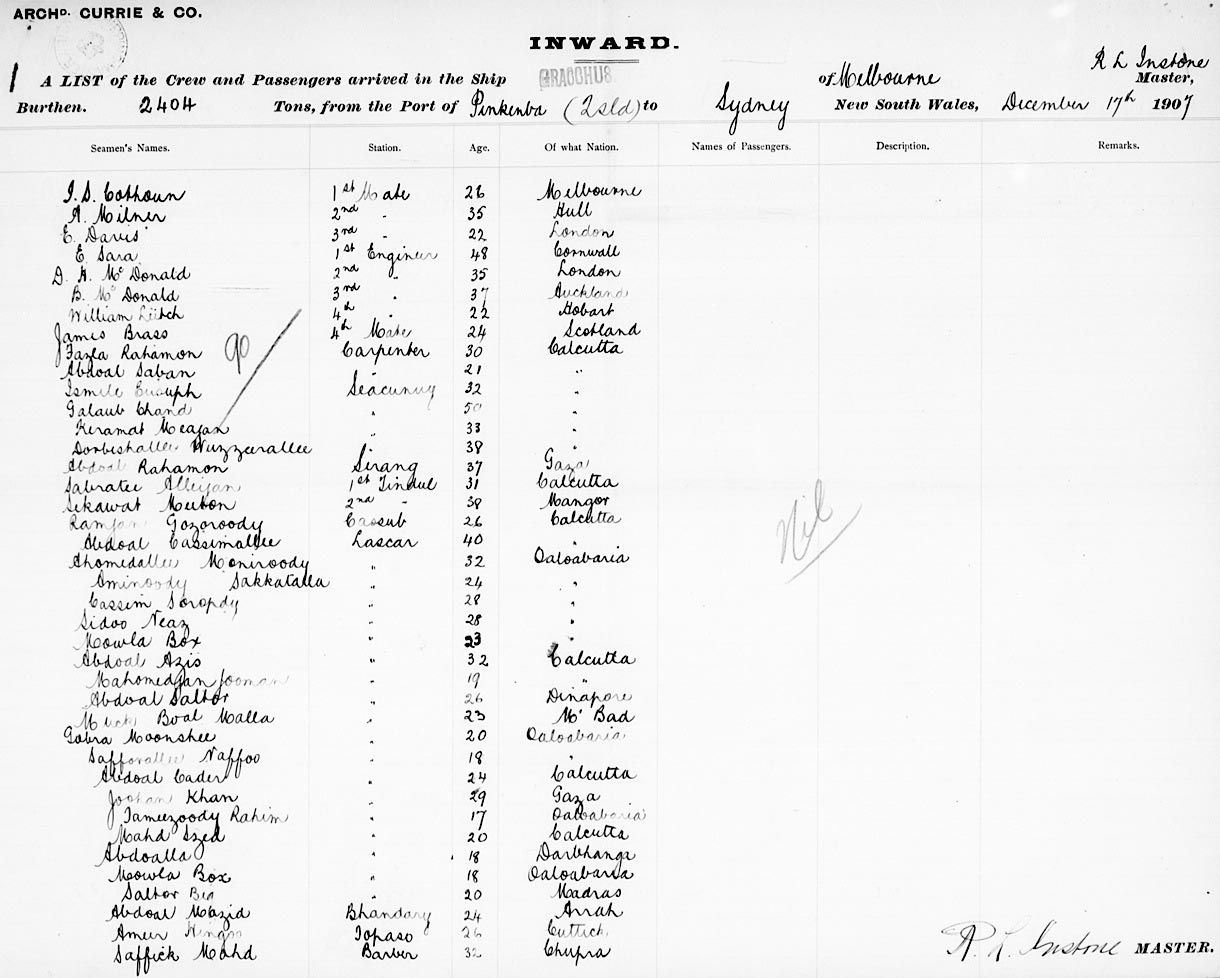 ARCHD. CURRIE & CO.
INWARD.
R L Instone
1 A LIST of the Crew and Passengers arrived in the Ship GRACCHUS of Melbourne Master,
Burthen. 2404 Tons, from the Port of Pinkenba (Qsld) to Sydney New South Wales, December 17th 1907
Seamen's Names. Station. Age. Of what Nation. Names of Passengers. Description. Remarks.
J. S. Calhoun 1st Mate 26 Melbourne
A. Milner 2nd " 35 Hull
E. Davis 3rd " 22 London
E. Sara 1st Engineer 48 Cornwall
D. H. McDonald 2nd " 35 London
B. McDonald 3rd " 37 Auckland
William Leitch 4th " 22 Hobart
James Brass 4th Mate 24 Scotland
Fazla Rahamon Carpenter 30 Calcutta
90
Abdoal Saban " 21 "
Ismile Eusuph Seacunny 32 "
Galaub Chand " 50 "
Keramat Meajan " 33 "
Dorbeshallee Wuzzeerallee " 38 "
Abdoal Rahamon Sirang 37 Gaza
Sabratee Alleijan 1st Tindul 31 Calcutta
Sekawat 2nd " 38 Mangor
Ramjan Gozoroody Cassub 26 Calcutta
Abdoal Cassimallee Lascar 40 "
Nil
Ahomedallee Moniroody " 32 Oaloabaria
Aminoody Sakkatalla " 24 "
Cassim Soropdy " 28 "
Sidoo Neaz " 28 "
Mowla Box " 23 "
Abdoal Azis " 32 Calcutta
Mahomedjan Jooman " 19 "
Abdoal Sattor " 26 Dinapore
Boal Malla " 23 M' Bad
Gobra Moonshee " 20 Oaloabaria
Safforallee Naffoo " 18 "
Abdoal Cader " 24 Calcutta
Joohan Khan " 29 Gaza
Tameezoody Rahim " 17 Oaloabaria
Mahd Szed " 20 Calcutta
Abdoalla " 18 Darbhanga
Mowla Box " 18 Oaloabaria
Sattor " 20 Madras
Abdoal Mazid Bhandary 24 Arrah
Ameer Topaso 26 Cuttick
Saffick Mahd Barber 32 Chupra
R. L. Instone MASTER.